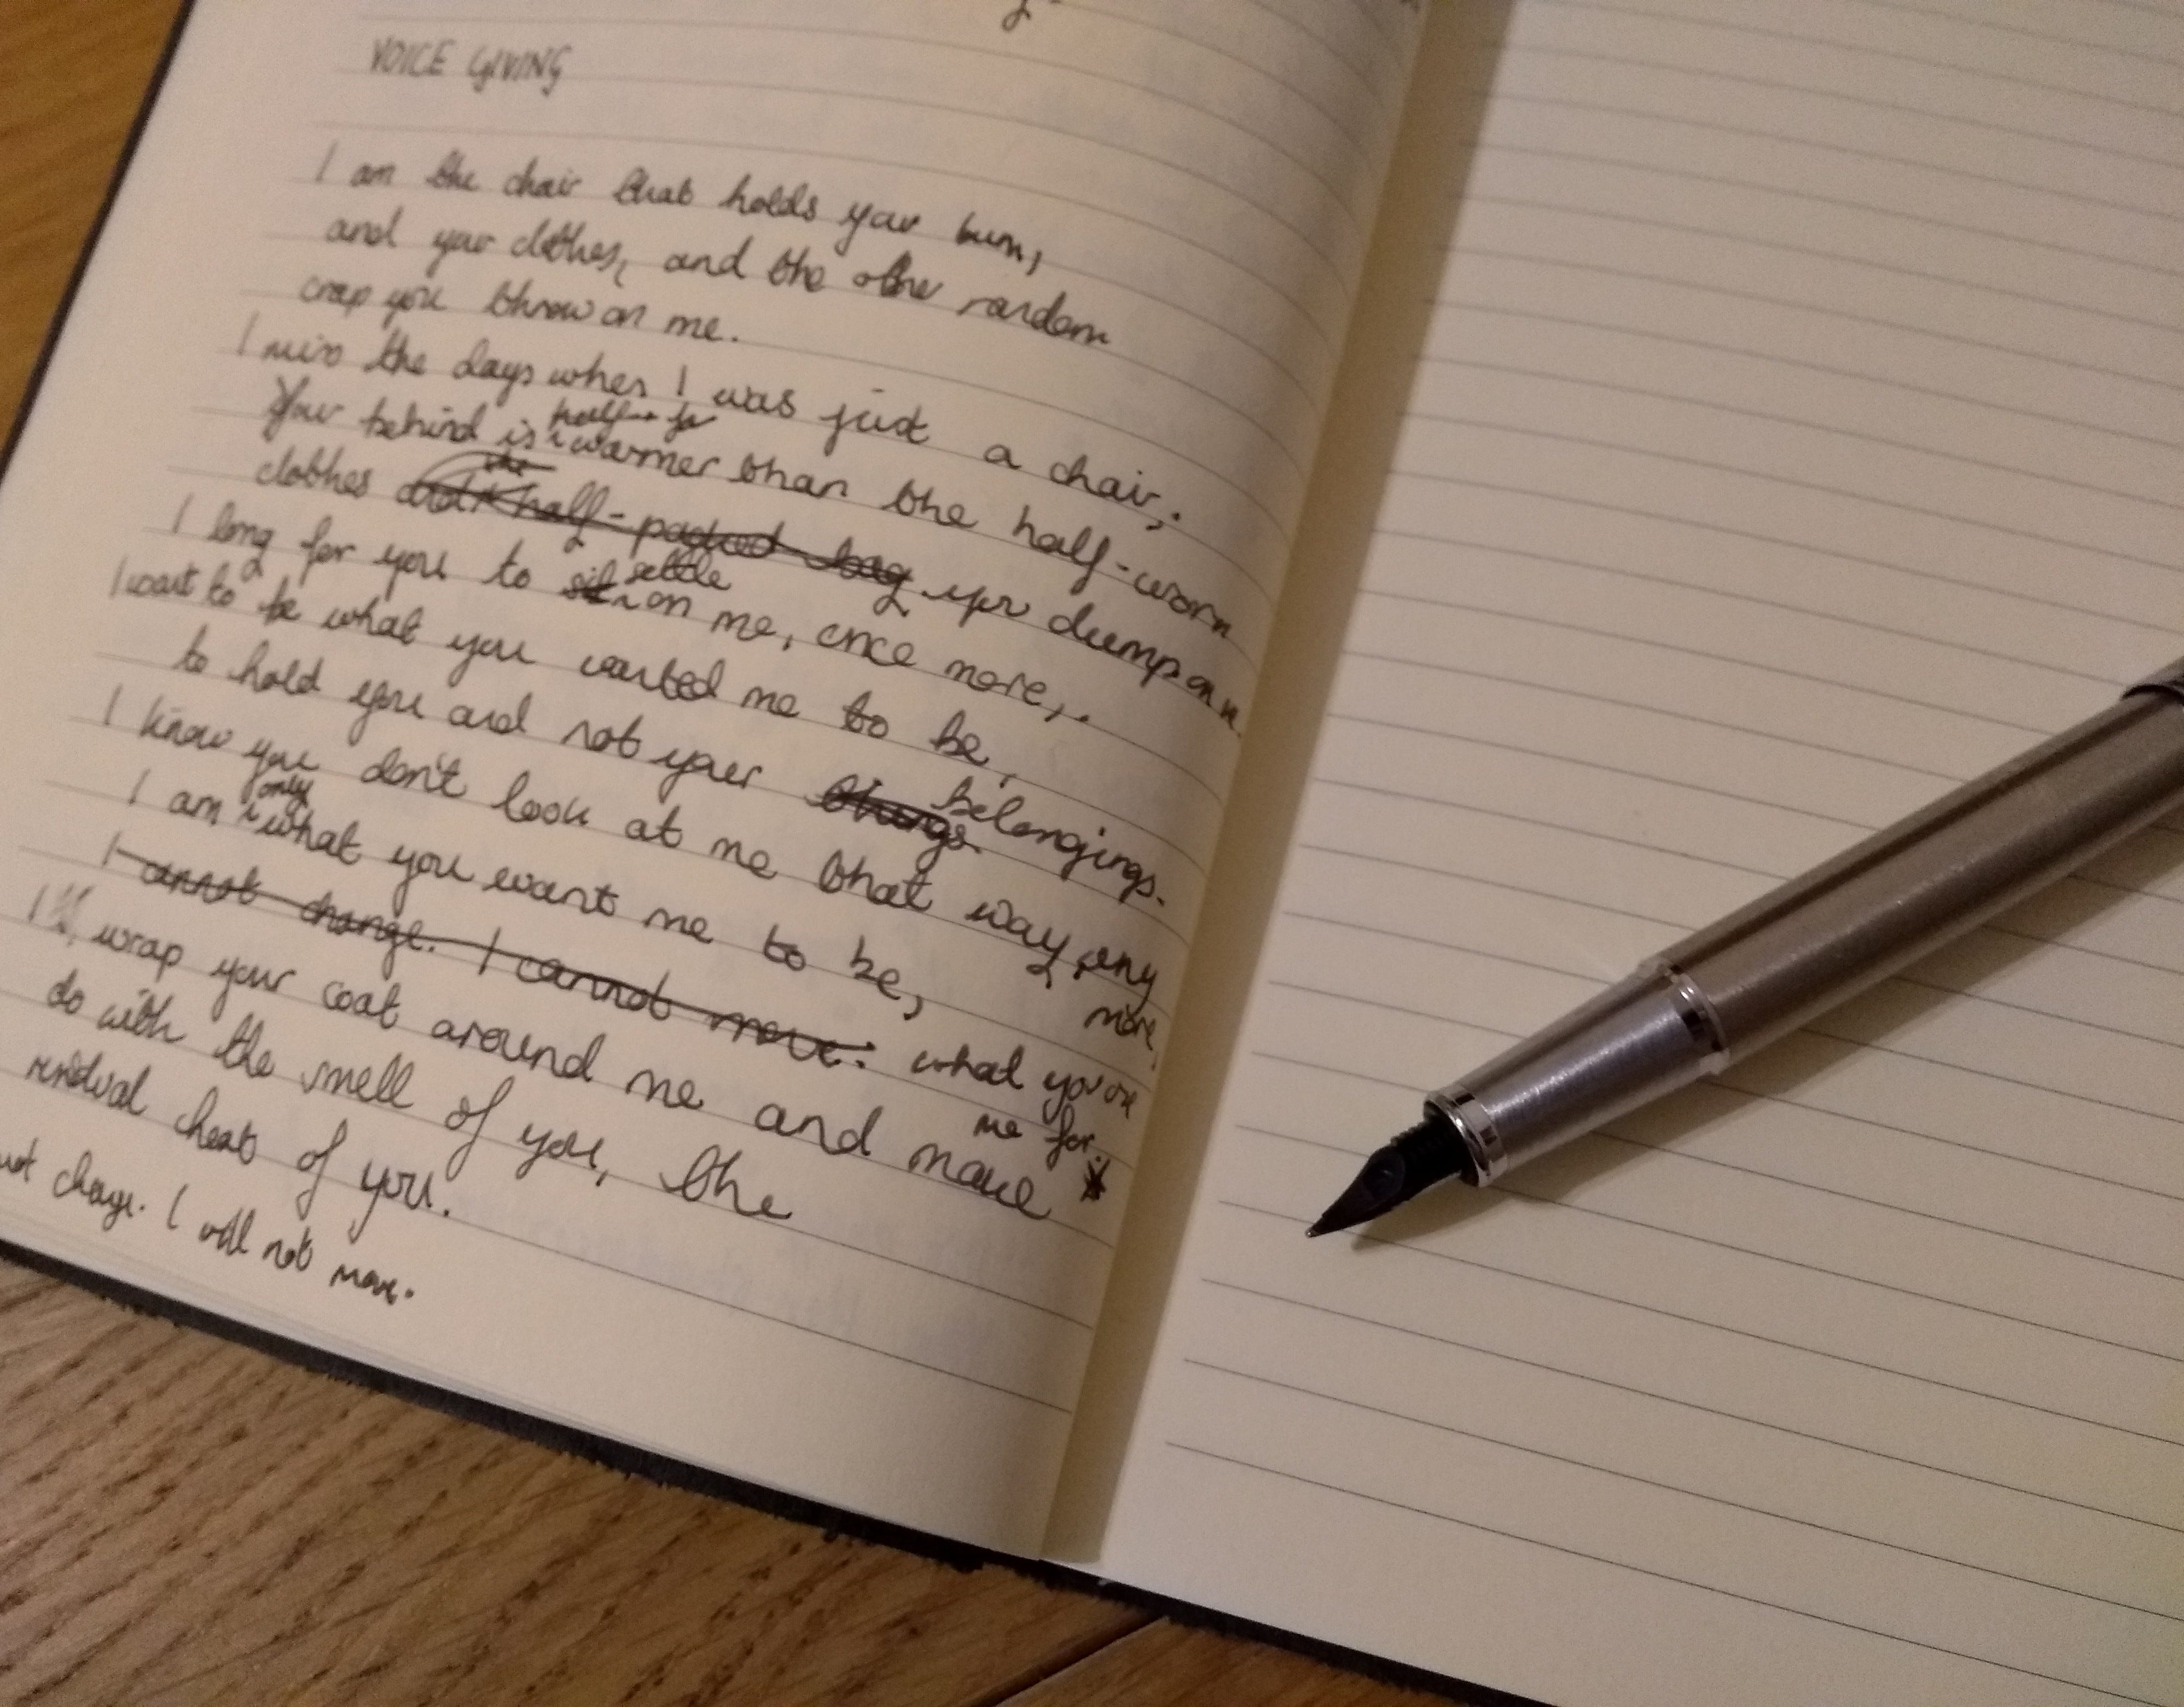 VOICE GIVING
I am the chair that holds your bum,
and your clothes, and the other random
crap you throw on me.
I miss the days when I was just a chair,.
Your behind is warmer than the half-worn
clothes and the half-packed bag your dump on
I long for you to sit settle on me, once more,.
I want to be what you wanted me to be,
to hold you and not your things. belongings.
I know you don't look at me that way any
more,
I am only what you want me to be,
I cannot change. I cannot move. what you
me for.
I'll wrap your coat around me and make
do with the smell of you, the
residual heat of you.
not change. I will not move.